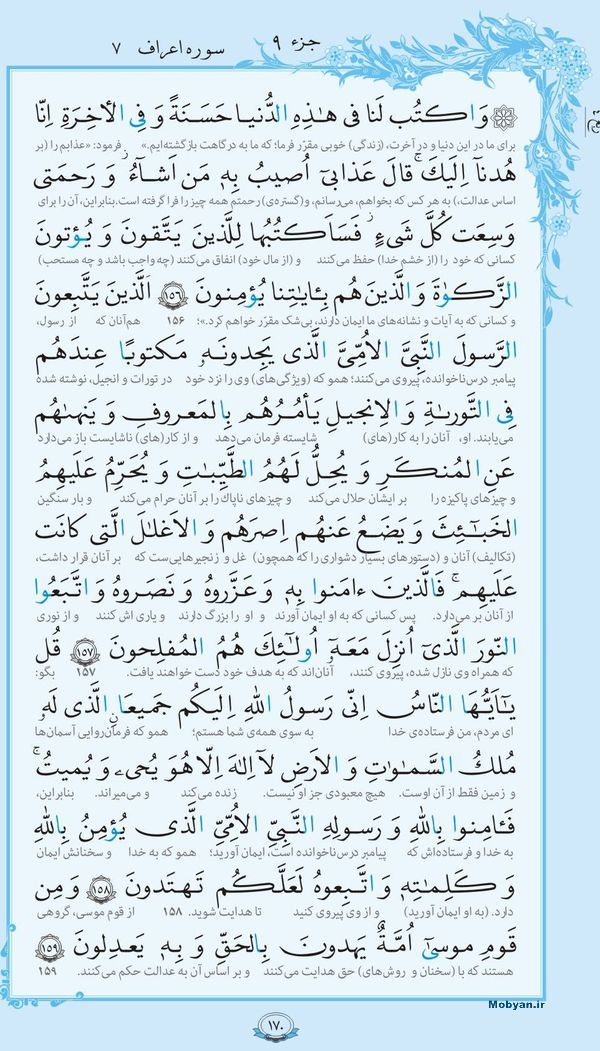 سوره اعراف ۷
جزء ۹
وَاكتُب لَنا فى هٰذِهِ الدُّنيا حَسَنَةً وَ فِى الأخِرَةِ اِنّا
برای ما در این دنیا و در آخرت، (زندگی) خوبی مقرّر فرما؛ که ما به درگاهت بازگشته‌ایم.» فرمود: «عذابم را (بر
هُدنآ اِلَيكَ ۚ قالَ عَذابىٓ اُصيبُ بِهٖ مَن اَشآءُ ۖ وَ رَحمَتى
اساس عدالت،) به هر کس که بخواهم، می‌رسانم، و(گستره‌ی) رحمتم همه چیز را فرا گرفته است. بنابراین، آن را برای
وَسِعَت كُلَّ شَىءٍ ۚ فَسَاَكتُبُها لِلَّذينَ يَتَّقونَ وَ يُؤتونَ
کسانی که خود را (از خشم خدا) حفظ می‌کنند و (از مال خود) انفاق می‌کنند (چه واجب باشد و چه مستحب)
الزَّكوٰةَ وَ الَّذينَ هُم بِـٔاياتِنا يُؤمِنونَ ۱۵۶ اَلَّذينَ يَتَّبِعونَ
و کسانی که به آیات و نشانه‌های ما ایمان دارند، بی‌شک مقرّر خواهم کرد.»؛ ۱۵۶ هم‌آنان که از رسول،
الرَّسولَ النَّبِىَّ الاُمِّىَّ الَّذى يَجِدونَهٗ مَكتوبًا عِندَهُم
پیامبر درس‌ناخوانده، پیروی می‌کنند؛ همو که (ویژگی‌های) وی را نزد خود در تورات و انجیل، نوشته شده
فِى التَّورىٰةِ وَ الاِنجيلِ يَأمُرُهُم بِالمَعروفِ وَ يَنهىٰهُم
می‌یابند. او، آنان را به کار(های) شایسته فرمان می‌دهد و از کار(های) ناشایست باز می‌دارد
عَنِ المُنكَرِ وَ يُحِلُّ لَهُمُ الطَّيِّبٰتِ وَ يُحَرِّمُ عَلَيهِمُ
و چیزهای پاکیزه را بر ایشان حلال می‌کند و چیزهای ناپاک را بر آنان حرام می‌کند و بار سنگین
الخَبٰٓئِثَ وَ يَضَعُ عَنهُم اِصرَهُم وَ الاَغلٰلَ الَّتى كانَت
(تکالیف) آنان و (دستورهای بسیار دشواری را که همچون) غل و زنجیرهایی‌ست که بر آنان قرار داشت،
عَلَيهِم ۚ فَالَّذينَ ءامَنوا بِهٖ وَ عَزَّروهُ وَ نَصَروهُ وَ اتَّبَعُوا
از آنان بر می‌دارد. پس کسانی که به او ایمان آورند و او را بزرگ دارند و یاری اش کنند و از نوری
النّورَ الَّذىٓ اُنزِلَ مَعَهٗٓ اُولٰٓئِكَ هُمُ المُفلِحونَ ۱۵۷ قُل
که همراه وی نازل شده، پیروی کنند، آنان‌اند که به هدف خود دست خواهند یافت. ۱۵۷ بگو:
يٰٓاَيُّهَا النّاسُ اِنّى رَسولُ اللهِ اِلَيكُم جَميعًا الَّذى لَهٗ
ای مردم، من فرستاده‌ی خدا به سوی همه‌ی شما هستم؛ همو که فرمان‌روایی آسمان‌ها
مُلكُ السَّمٰوٰتِ وَ الاَرضِ لآ اِلٰهَ اِلّا هُوَ يُحيۦ وَ يُميتُ ۚ
و زمین فقط از آن اوست. هیچ معبودی جز او نیست. زنده می‌کند و می‌میراند. بنابراین،
فَـٔامِنوا بِاللهِ وَ رَسولِهِ النَّبِىِّ الاُمِّىِّ الَّذى يُؤمِنُ بِاللهِ
به خدا و فرستاده‌اش که پیامبر درس‌ناخوانده است، ایمان آورید؛ همو که به خدا و سخنانش ایمان
وَ كَلِمٰتِهٖ وَ اتَّبِعوهُ لَعَلَّكُم تَهتَدونَ ۱۵۸ وَ مِن
دارد. (به او ایمان آورید) و از وی پیروی کنید تا هدایت شوید. ۱۵۸ از قوم موسی، گروهی
قَومِ موسىٰٓ اُمَّةٌ يَهدونَ بِالحَقِّ وَ بِهٖ يَعدِلونَ ۱۵۹
هستند که با (سخنان و روش‌های) حق هدایت می‌کنند و بر اساس آن به عدالت حکم می‌کنند. ۱۵۹
Mobyan.ir
۱۷۰